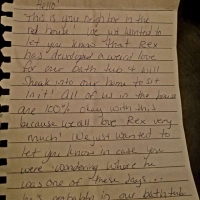 Hello!
This is your neighbor in the
red house! We just wanted to
let you know that Rex
has developed a weird love
for our bath tub & will
sneak into our home to sit
in it! All of us in the house
are 100% okay with this
because we all love Rex very
much! We just wanted to
let you know in case you
were wondering where he
was one of these days...
he's probably in our bathtub